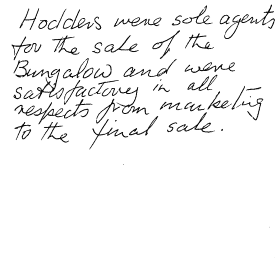 Hodders were sole agents
for the sale of the
Bungalow and were
satisfactory in all
respects from marketing
to the final sale.